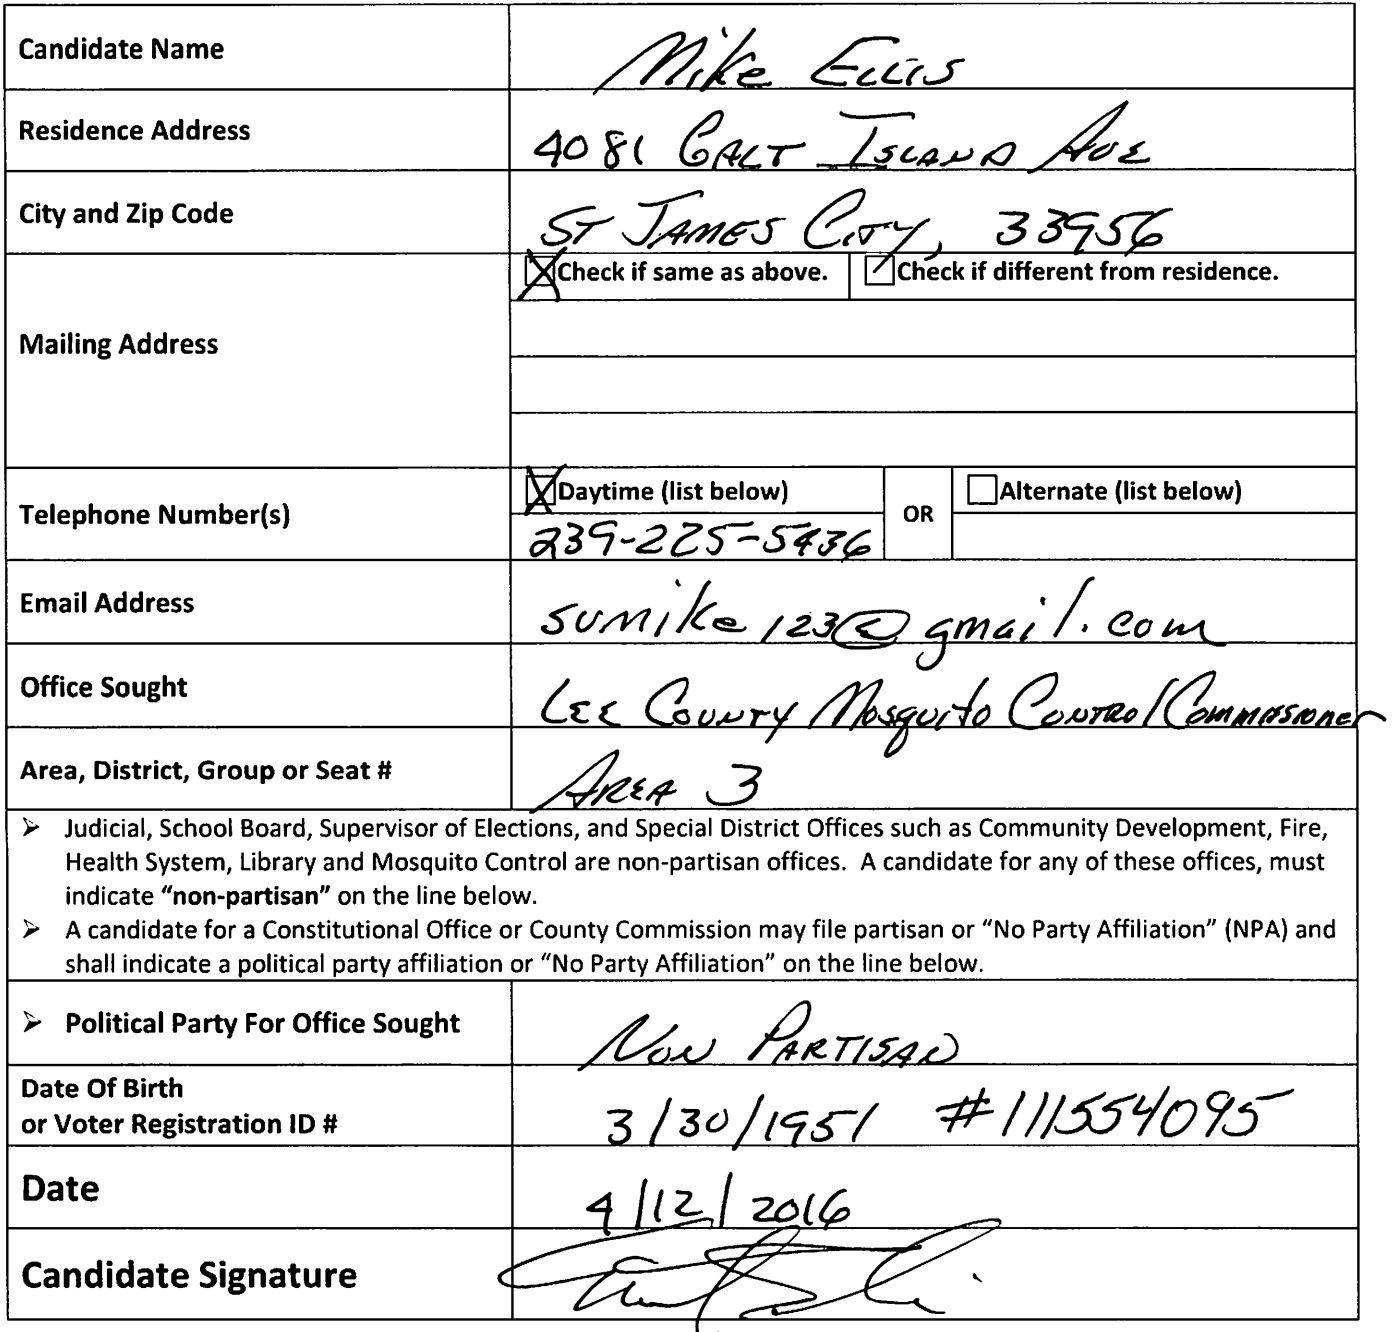 Candidate Name Mike Ellis
Residence Address 4081 Galt Island Ave
City and Zip Code St James City, 33956
Check if same as above. Check if different from residence.
Mailing Address
Daytime (list below) OR Alternate (list below)
Telephone Number(s)
239-225-5436
Email Address sumike123@gmail.com
Office Sought Lee County Mosquito Control Commissioner
Area, District, Group or Seat # Area 3
➢ Judicial, School Board, Supervisor of Elections, and Special District Offices such as Community Development, Fire,
Health System, Library and Mosquito Control are non-partisan offices. A candidate for any of these offices, must
indicate "non-partisan" on the line below.
➢ A candidate for a Constitutional Office or County Commission may file partisan or "No Party Affiliation" (NPA) and
shall indicate a political party affiliation or "No Party Affiliation" on the line below.
➢ Political Party For Office Sought Non Partisan
Date Of Birth
or Voter Registration ID # 3/30/1951 #111554095
Date 4/12/2016
Candidate Signature